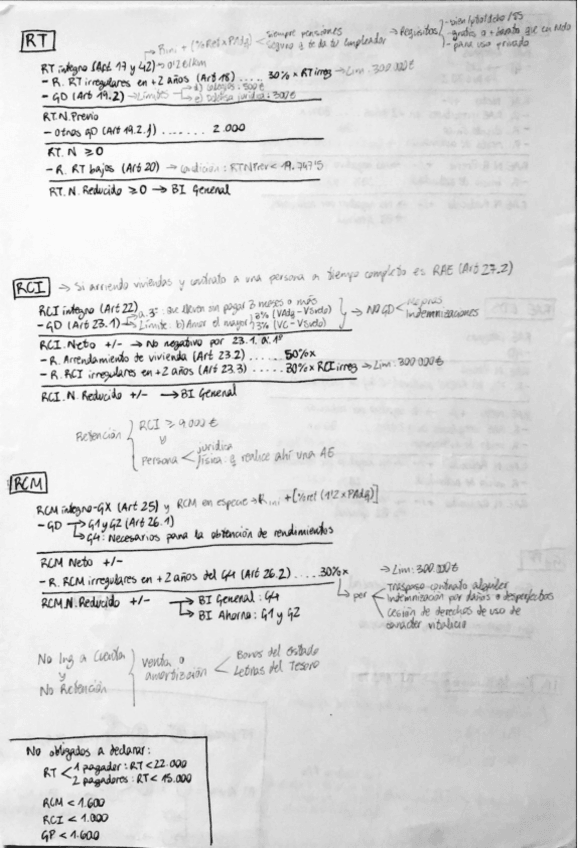 RT
→ Rini + (%Ret x PAdq) < siempre pensiones
seguro q te da tu empleador
→ Requisitos
- bien/ptal/dcho/SS
- gratis o + barato que en Mdo
- para uso privado
RT íntegro (Art 17 y 42) → 0'26/km
- R. RT irregulares en +2 años (Art 18) .... 30% x RT irreg → Lim: 300.000€
- GD (Art 19.2) → Límites d) 500€
e) Defensa jurídica: 300€
RT.N.Previo
- Otros GD (Art 19.2.f) ....... 2.000
RT.N ≥0
- R. RT bajos (Art 20) → condición: RTNPrev < 19.747'5
RT.N.Reducido ≥0 → BI General
RCI → Si arriendo viviendas y contrato a una persona a tiempo completo es RAE (Art 27.2)
RCI íntegro (Art 22)
- GD (Art 23.1) → a.3º: que lleven sin pagar 3 meses o más
→ Límite: b) Amor el mayor } 3% (VAdq - VSuelo)
3% (VC - VSuelo)
→ NO GD < Mejoras
Indemnizaciones
RCI.Neto +/- → No negativo por 23.1.a.1º
- R. Arrendamiento de vivienda (Art 23.2) ..... 50% x
- R. RCI irregulares en +2 años (Art 23.3) ..... 30% x RCI irreg → Lim: 300.000€
RCI.N.Reducido +/- → BI General
Retención } RCI ≥ 9000€
y
Persona < jurídica
física: q realice ahí una AE
RCM
RCM íntegro-GX (Art 25) y RCM en especie → Rini + [%ret (1'2 x PAdq)]
- GD → G1 y G2 (Art 26.1)
→ G4: Necesarios para la obtención de rendimientos
RCM Neto +/-
- R. RCM irregulares en +2 años del G4 (Art 26.2) .... 30% x → Lim: 300.000€
→ por < Traspaso contrato alquiler
Indemnización por daños o desperfectos
Cesión de derechos de uso de
carácter vitalicio
RCM.N.Reducido +/- → BI General: G4
→ BI Ahorro: G1 y G2
No Ing a Cuenta
y
No Retención
} Venta o
amortización < Bonos del Estado
Letras del Tesoro
No obligados a declarar:
RT < 1 pagador: RT < 22.000
2 pagadores: RT < 15.000
RCM < 1.600
RCI < 1.000
GP < 1.600